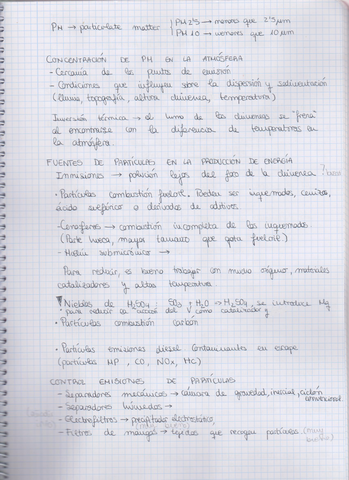 PM → particulate matter | PM 2'5 → menores que 2'5 µm
PM 10 → menores que 10 µm
CONCENTRACIÓN DE PM EN LA ATMÓSFERA
- Cercanía de los puntos de emisión
- Condiciones que influyen sobre la dispersión y sedimentación
(lluvia, topografía, altura chimenea, temperatura)
Inversión térmica → el humo de las chimeneas se "frena"
al encontrarse con la diferencia de temperaturas en
la atmósfera.
FUENTES DE PARTÍCULAS EN LA PRODUCCIÓN DE ENERGÍA
Inmisiones → polución lejos del foco de la chimenea ?
• Partículas combustión fueloil. Pueden ser inquemados, cenizas,
ácido sulfúrico o derivados de aditivos.
- Cenosferas → combustión incompleta de los inquemados.
(Parte hueca, mayor tamaño que gota fueloil)
- Hollín submicrónico →
Para reducir, es bueno trabajar con mucho oxígeno, materiales
catalizadores y altas temperaturas
Nieblas de H2SO4: SO3 + H2O → H2SO4, se introduce Mg
para reducir la acción del V como catalizador
• Partículas combustión carbón
• Partículas emisiones diésel Contaminantes en escape
(partículas MP, CO, NOx, HC)
CONTROL EMISIONES DE PARTÍCULAS
- Separadores mecánicos → cámara de gravedad, inercial, ciclón
convencional
- Separadores húmedos →
- Electrofiltros → precipitador electrostático
- Filtros de mangas → tejidos que recogen partículas (muy